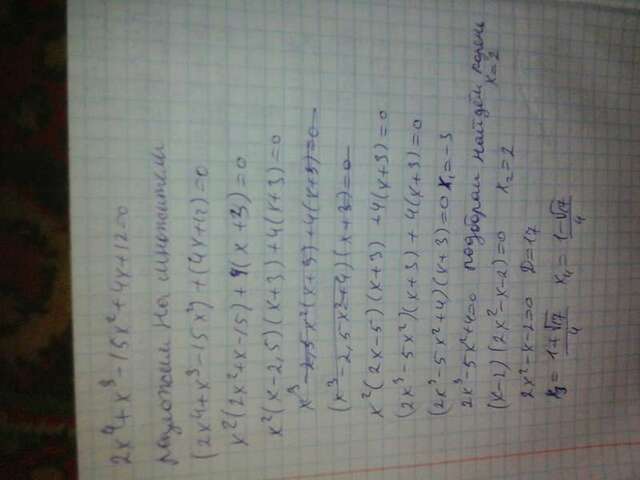 2x⁴+x³-15x²+4x+12=0
разложим на множители
(2x⁴+x³-15x²)+(4x+12)=0
x²(2x²+x-15)+4(x+3)=0
x²(x-2,5)(x+3)+4(x+3)=0
x³-2,5x²(x+3)+4(x+3)=0
(x³-2,5x²+4)(x+3)=0
x²(2x-5)(x+3)+4(x+3)=0
(2x³-5x²)(x+3)+4(x+3)=0
(2x³-5x²+4)(x+3)=0 x₁=-3
2x³-5x²+4=0 подбором найдём корень x=2
(x-2)(2x²-x-2)=0 x₂=2
2x²-x-2=0 D=17
x₃=(1+√17)/4 x₄=(1-√17)/4